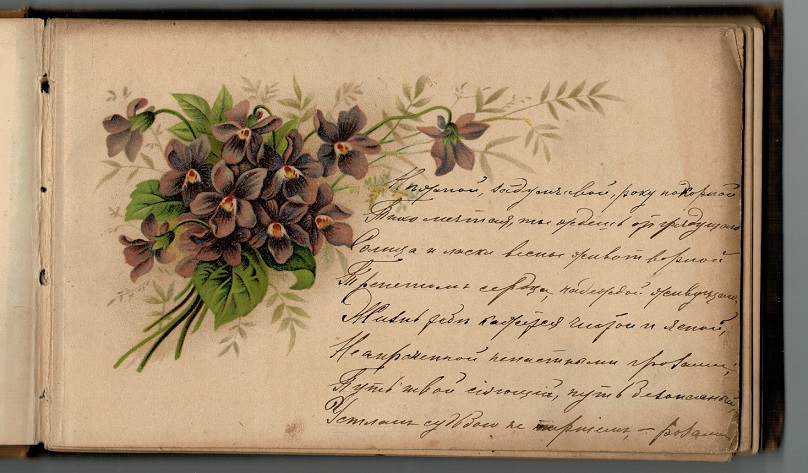 задумчивой, року покорной
Тихо мечтая, ты ждешь отъ грядущаго
Солнца и ласки весны животворной
Трепетомъ сердца, надеждой живущаго.
Жизнь тебѣ кажется чистой и ясной,
Неомраченной ненастными грозами;
Путь твой сіяющій, путь безопасный,
Устланъ судьбою не терніемъ, – розами